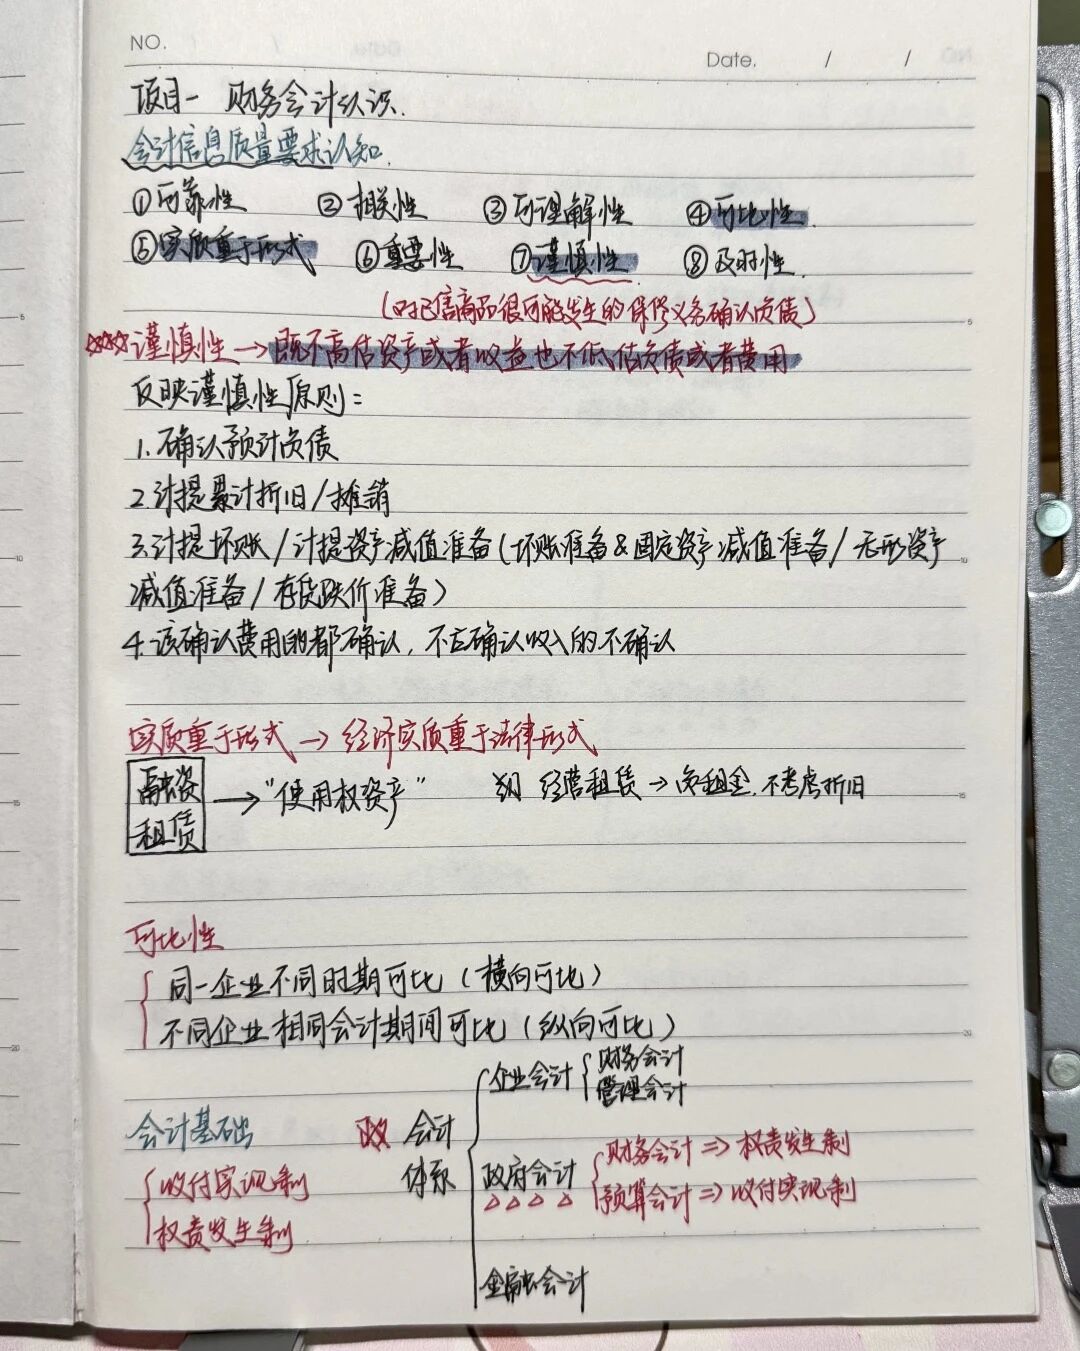 NO.
Date. / /
项目一 财务会计认识.
会计信息质量要求认知.
①可靠性 ②相关性 ③可理解性 ④可比性.
⑤实质重于形式 ⑥重要性 ⑦谨慎性 ⑧及时性.
(对已售商品很可能发生的保修义务确认负债)
☆☆☆谨慎性→既不高估资产或者收益也不低估负债或者费用
反映谨慎性原则:
1.确认预计负债
2.计提累计折旧/摊销
3.计提坏账/计提资产减值准备(坏账准备&固定资产减值准备/无形资产
减值准备/存货跌价准备)
4.该确认费用的都确认,不应确认收入的不确认
实质重于形式→经济实质重于法律形式
融资
租赁
→"使用权资产"
经营租赁→收租金.不考虑折旧
可比性
同一企业不同时期可比(横向可比)
不同企业相同会计期间可比(纵向可比)
会计基础
收付实现制
权责发生制
会计
体系
企业会计
财务会计
管理会计
政府会计
财务会计⇒权责发生制
预算会计⇒收付实现制
金融会计
5
10
15
20
5
10
15
20